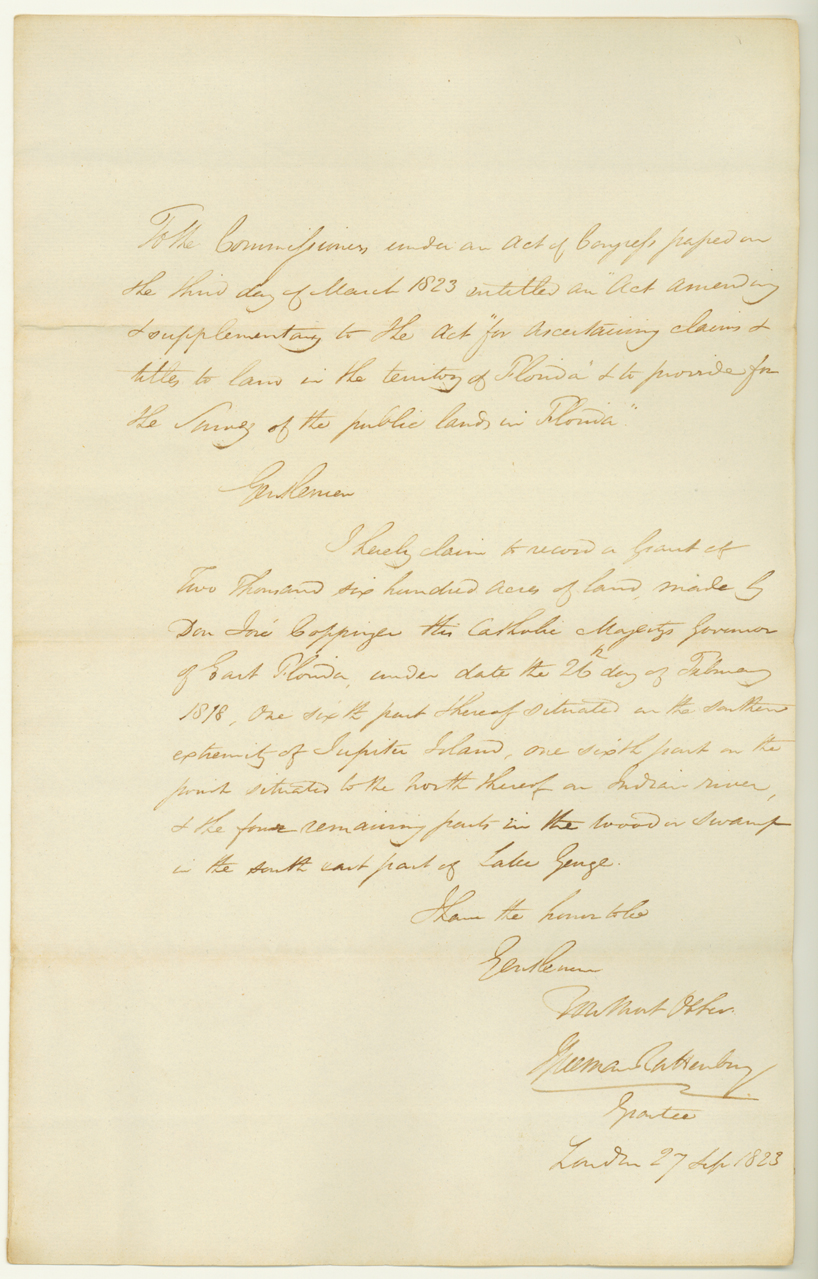 To the Commissioners under an Act of Congress passed on
the third day of March 1823 entitled an "Act amending
& supplementary to the Act "for ascertaining claims &
titles to land in the territory of Florida" & to provide for
the Survey of the public lands in Florida"
Gentlemen
I hereby claim to record a Grant of
Two thousand six hundred acres of land, made by
Don José Coppinger His Catholic Majestys Governor
of East Florida, under date the 26th day of February
1818, one sixth part thereof situated on the southern
extremity of Jupiter Island, one sixth part on the
point situated to the north thereof on Indian river,
& the four remaining parts in the wood or swamp
in the south east part of Lake George.
I have the honor to be
Gentlemen
Your Most Obbt.
Rattenbury
Grantee
London 27 Sep 1823